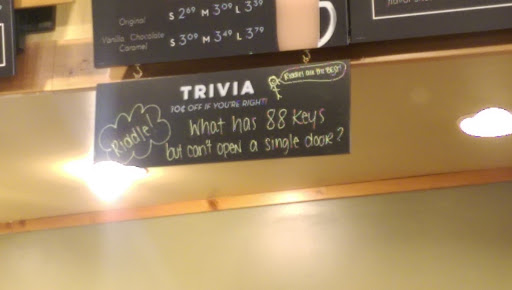 Original $ 2⁶⁹ M 3⁰⁹ L 3⁵⁹
Vanilla Chocolate Caramel $ 3⁰⁹ M 3⁴⁹ L 3⁷⁹
TRIVIA
10¢ OFF IF YOU'RE RIGHT!
Riddles are the BEST!
Riddle!
What has 88 keys
but can't open a single door?